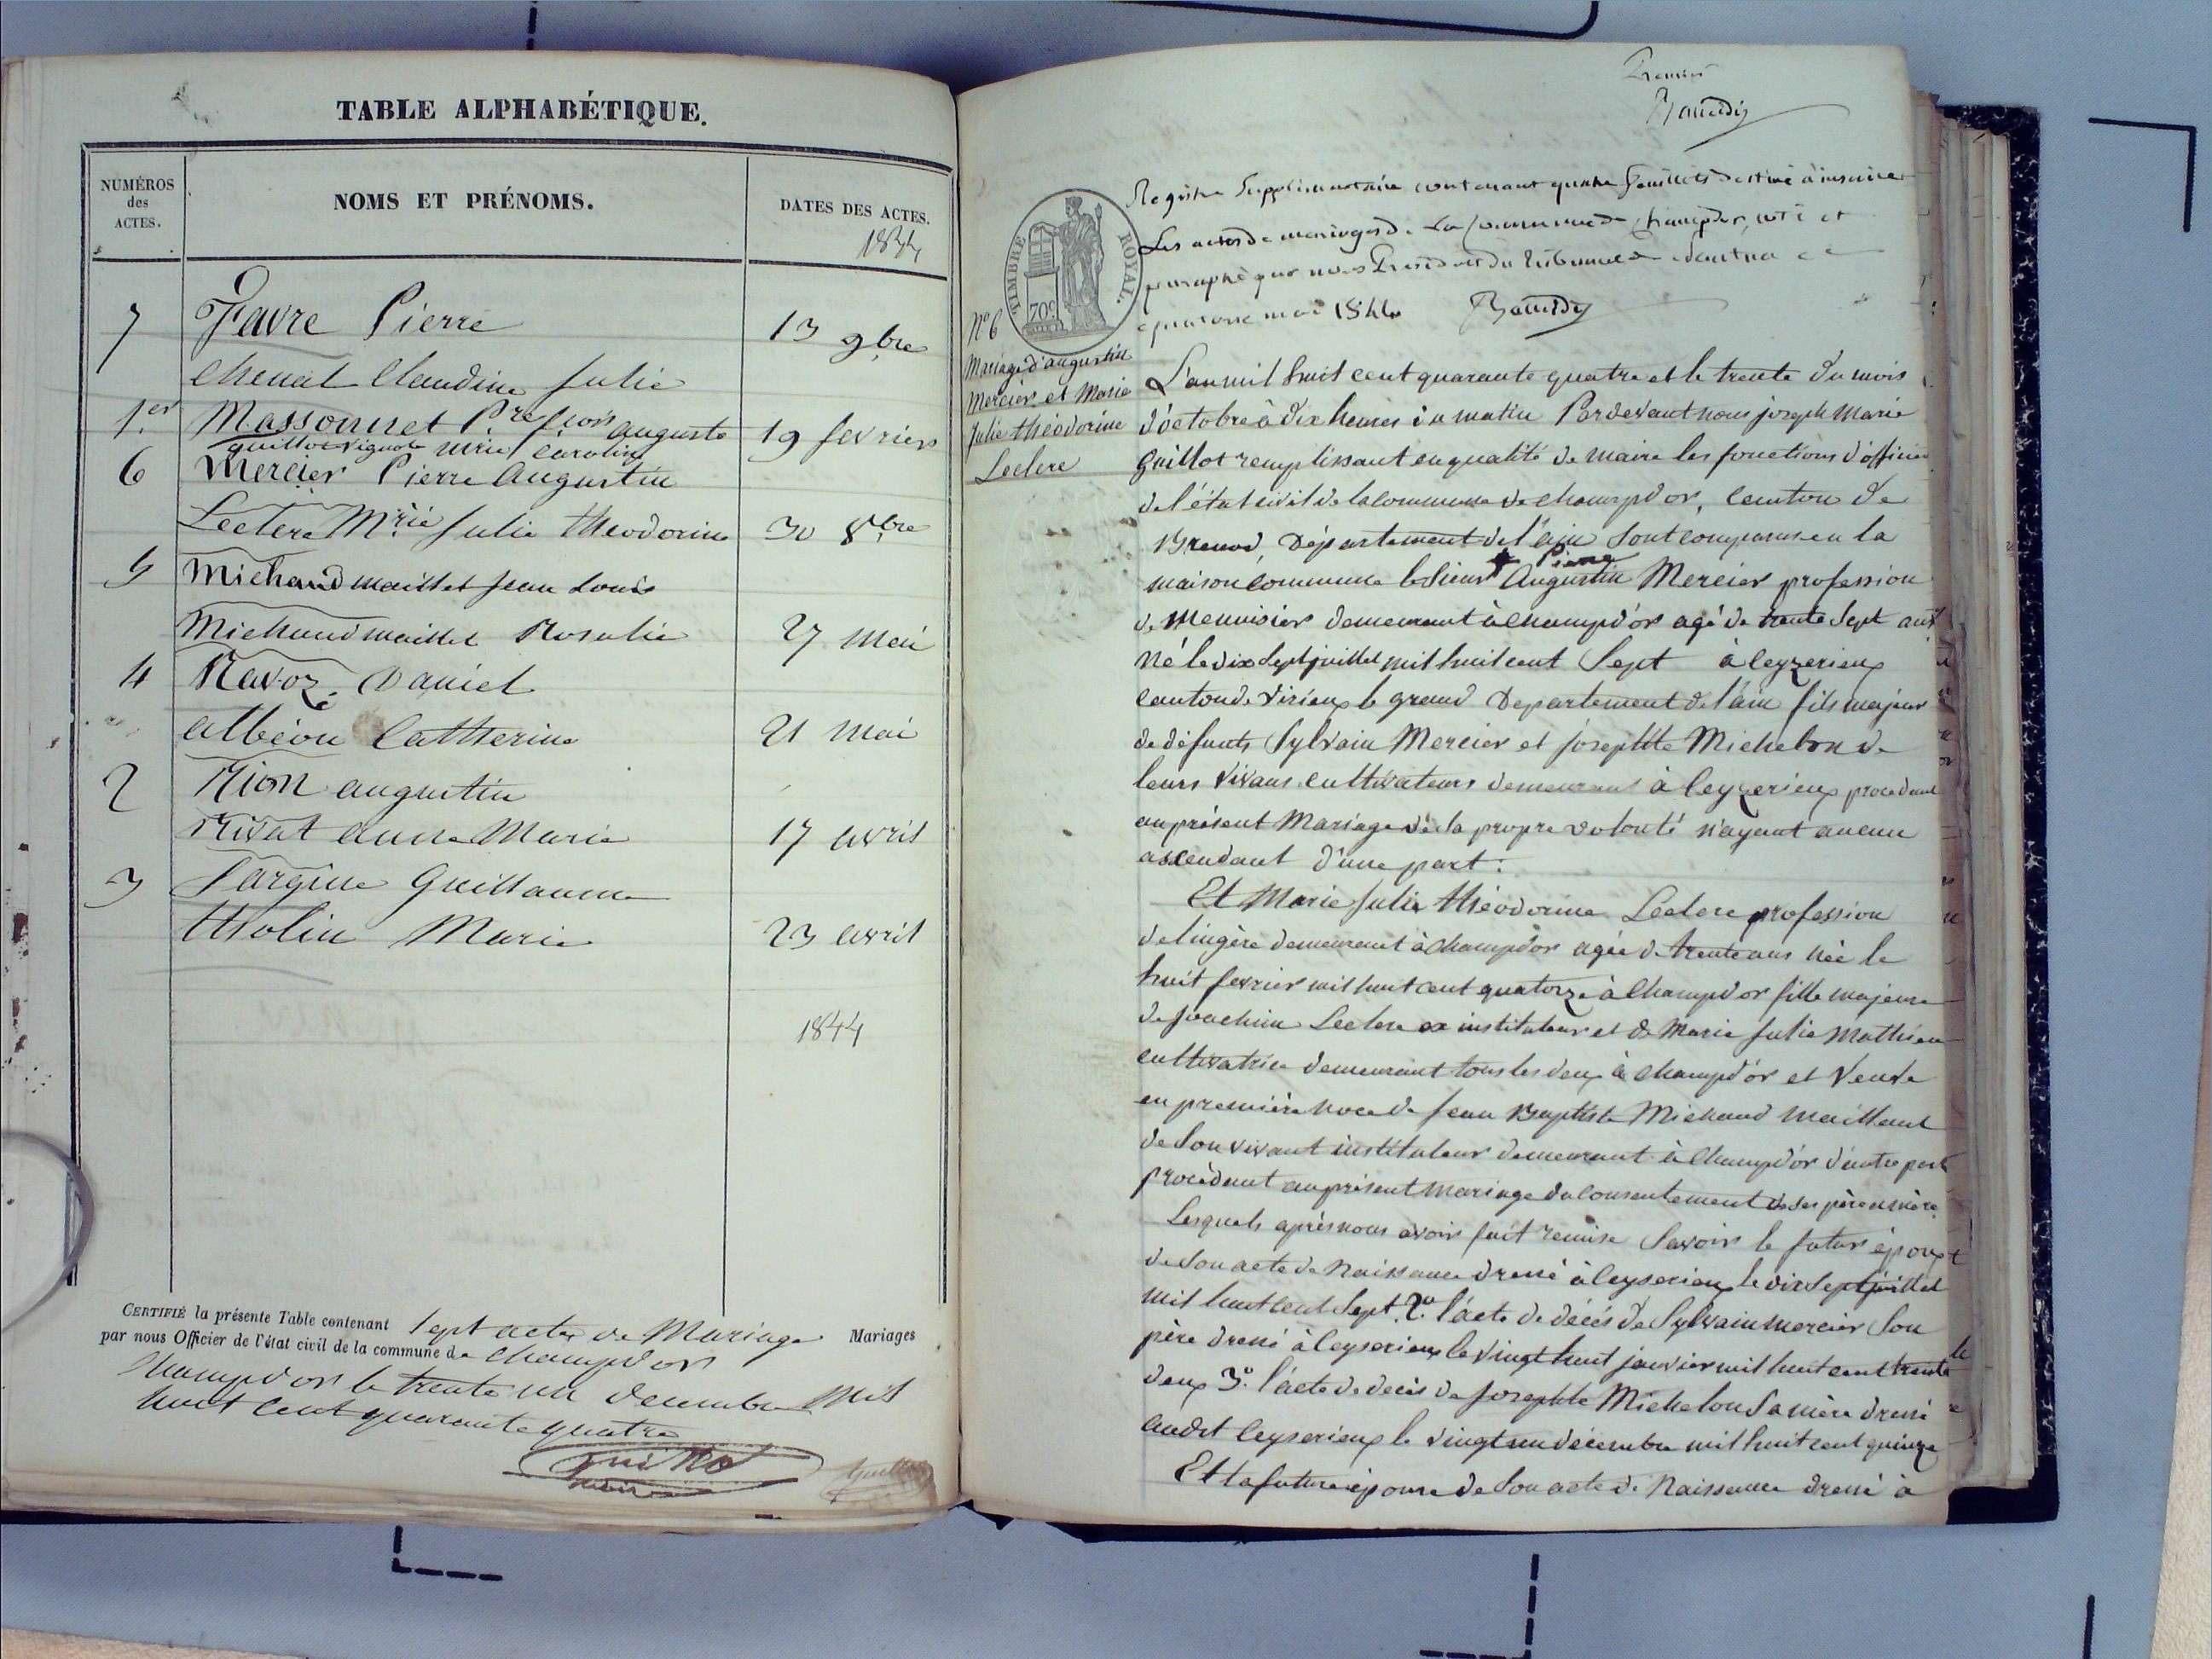 TABLE ALPHABÉTIQUE.
NUMÉROS
des
ACTES.
NOMS ET PRÉNOMS.
DATES DES ACTES.
1844
7 Favre Pierre 13 9bre
Chenal Claudine Julie
1.er Massonnet P.re fcois auguste 19 fevrier
guillot vignot mrie Caroline
6 Mercier Pierre Augustin
Leclerc M.rie Julie théodorine 30 8bre
5 Michaud maillet Jean Louis
Michaud maillet Rosalie 27 Mai
4 Navoz Daniel
albéon Catherine 21 Mai
2 Rion augustin
Rivat anne Marie 17 avril
3 Sargine Guillaume
tholin Marie 23 avril
1844
CERTIFIÉ la présente Table contenant sept actes de Mariage Mariages
par nous Officier de l'état civil de la commune de Champdor
Champdor le trente un decembre Mil
huit cent quarante quatre
Guillot
maire
Premier
TIMBRE ROYAL.
70c
Registre Supplémentaire contenant quatre feuillets destiné à inscrire
Les actes de mariages de La Commune de Champdor, coté et
paraphé par nous Président du Tribunal de Nantua ce
quatorze mai 1844
N° 6
Mariage d'augustin
Mercier et Marie
Julie théodorine
Leclerc
L'an mil huit cent quarante quatre et le trente du mois
d'octobre à dix heures du matin Pardevant nous joseph Marie
Guillot remplissant en qualité de maire les fonctions d'officier
de l'état civil de la commune de Champdor, Canton de
Brenod, Département de l'ain Sont comparus en la
Pierre
maison commune le Sieur Augustin Mercier profession
de Menuisier demeurant à Champdor agé de trente Sept ans
Né le dix Sept juillet mil huit cent Sept à Ceyzerieux
Canton de Virieux le grand Departement de l'ain fils majeur
de défunts Sylvain Mercier et Josephte Michelon de
leurs vivans Cultivateurs demeurant à Ceyzerieux procedant
au présent Mariage de sa propre volonté n'ayant aucun
ascendant d'une part :
Et Marie Julie théodorine Leclerc profession
de lingère demeurant à Champdor agée de trente ans née le
huit fevrier mil huit cent quatorze à Champdor fille majeure
de Joachim Leclerc ex instituteur et de Marie Julie Mathieu
cultivatrice demeurant tous les deux à Champdor et Veuve
en première noce de Jean Baptiste Michaud Maillet
de Son vivant instituteur demeurant à Champdor d'autre part
procédant au présent mariage du consentement de ses père et mère
Lesquels après nous avoir fait remise Savoir le futur époux
de Son acte de Naissance dressé à Ceyserieux le dix Sept juillet
mil huit cent Sept 2° l'acte de décès de Sylvain Mercier Son
père dressé à Ceyserieux le vingt huit janvier mil huit cent trente
deux 3° l'acte de decès de Josephte Michelon Sa mère dressé
audit Ceyserieux le vingt un décembre mil huit cent quinze
Et la future épouse de Son acte de Naissance dressé à